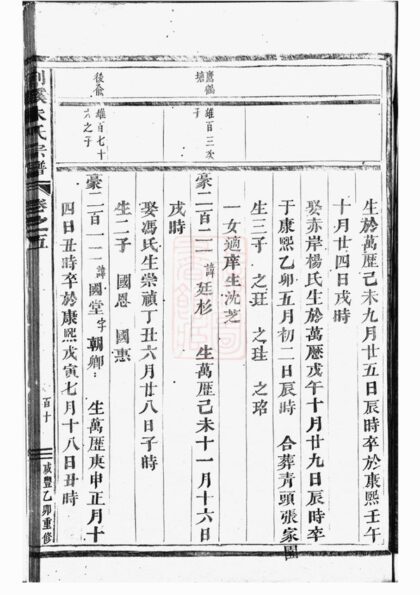 生於萬歷己未九月廿五日辰時卒於康熙壬午
十月廿四日戌時
娶赤岸楊氏生於萬歷戊午十月廿九日辰時卒
于康熙乙卯五月初二日辰時 合葬青頭張家園
生三子 之玨 之珪 之珞
一女適庠生沈芝
雄百三次子
豪二百二二 諱廷杉 生萬歷己未十一月十六日
戌時
娶馮氏生崇禎丁丑六月廿八日子時
生二子 國恩 國惠
後俞
雄百七十六之子
豪二百一一 諱國堂字朝卿 生萬歷庚申正月十
四日丑時卒於康熙戊寅七月十八日丑時
氏宗譜
卷之五
百十
咸豐乙卯重修